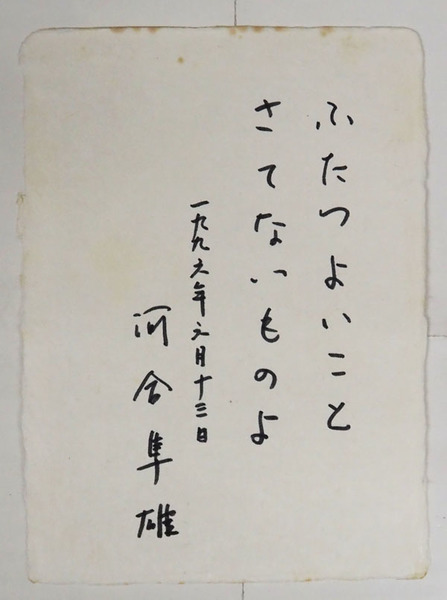 ふたつよいこと
さてないものよ
一九九六年六月十三日
河合隼雄